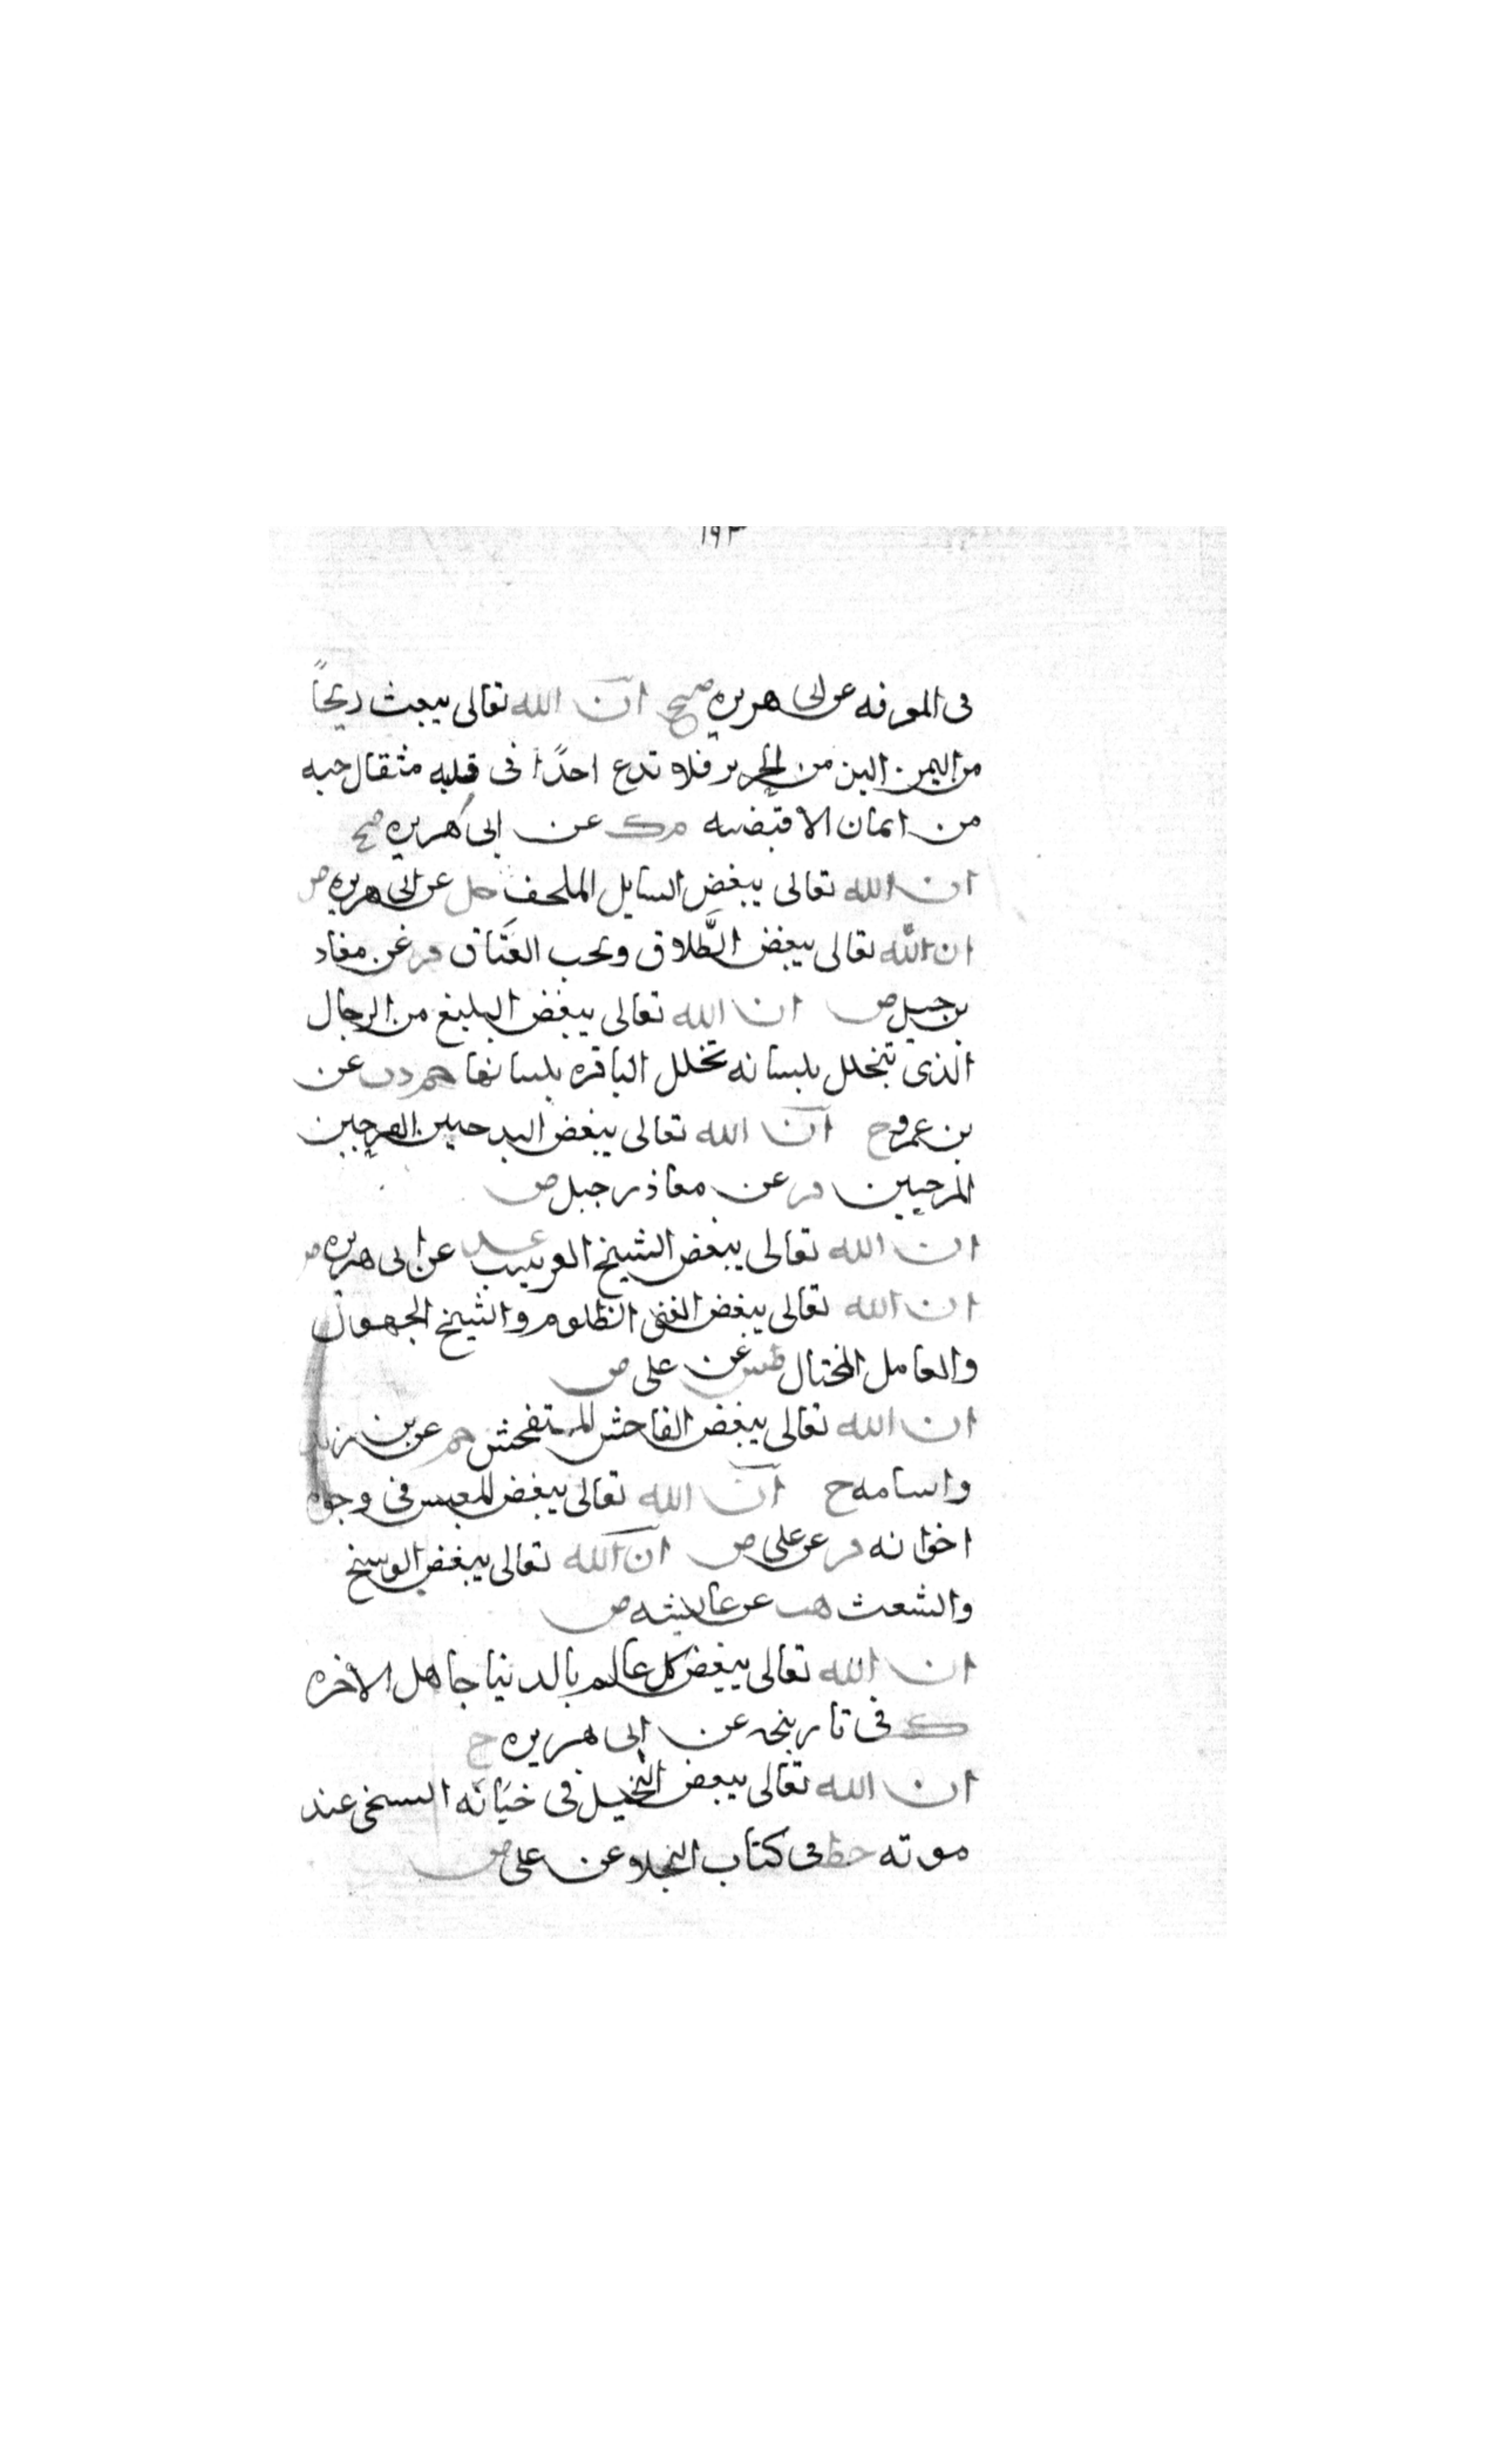 ١٩٣
فى المعرفه عن ابى هريره صح ان الله تعالى يبعث ريحاً
من اليمن الين من الحرير فلا تدع احدًا فى قلبه مثقال حبه
من ايمان الا قبضته م ك عن ابى هريره صح
ان الله تعالى يبغض السايل الملحف حل عن ابى هريره ض
ان الله تعالى يبغض الطَّلاق ويحب العَتَاق فر عن معاد
بن جبل ض ان الله تعالى يبغض البليغ من الرجال
الذى يتخلل بلسانه تخلل الباقره بلسانها حم د ت عن
بن عمرو ح ان الله تعالى يبغض البدحين الفرحين
المرحين فر عن معاذ بن جبل ض
ان الله تعالى يبغض الشيخ الغربيب عد عن ابى هريره ض
ان الله تعالى يبغض الغنى الظلوم والشيخ الجهول
والعامل المختال طس عن على ض
ان الله تعالى يبغض الفاحش المتفحش حم عن بن زيد
واسامه ح ان الله تعالى يبغض المعبس فى وجوه
اخوانه فر عن على ض ان الله تعالى يبغض الوسخ
والشعث هب عن عايشه ض
ان الله تعالى يبغض كل عالم بالدنيا جاهل الاخره
ك فى تاريخه عن ابى هريره ح
ان الله تعالى يبغض البخيل فى حياته السخى عند
موته خط فى كتاب البخلا عن على ض